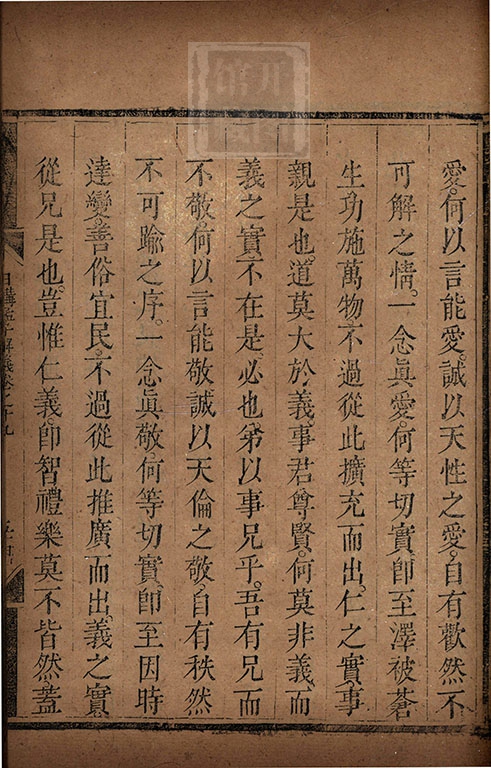 愛。何以言能愛。誠以天性之愛。自有歡然不
可解之情。一念眞愛。何等切實。即至澤被蒼
生。功施萬物。不過從此擴充而出。仁之實。事
親是也。道莫大於義。事君尊賢。何莫非義。而
義之實。不在是。必也。弟以事兄乎。吾有兄而
不敬。何以言能敬。誠以天倫之敬。自有秩然
不可踰之序。一念眞敬。何等切實。即至因時
達變。善俗宜民。不過從此推廣而出。義之實。
從兄是也。豈惟仁義。即智禮樂。莫不皆然。蓋
日講